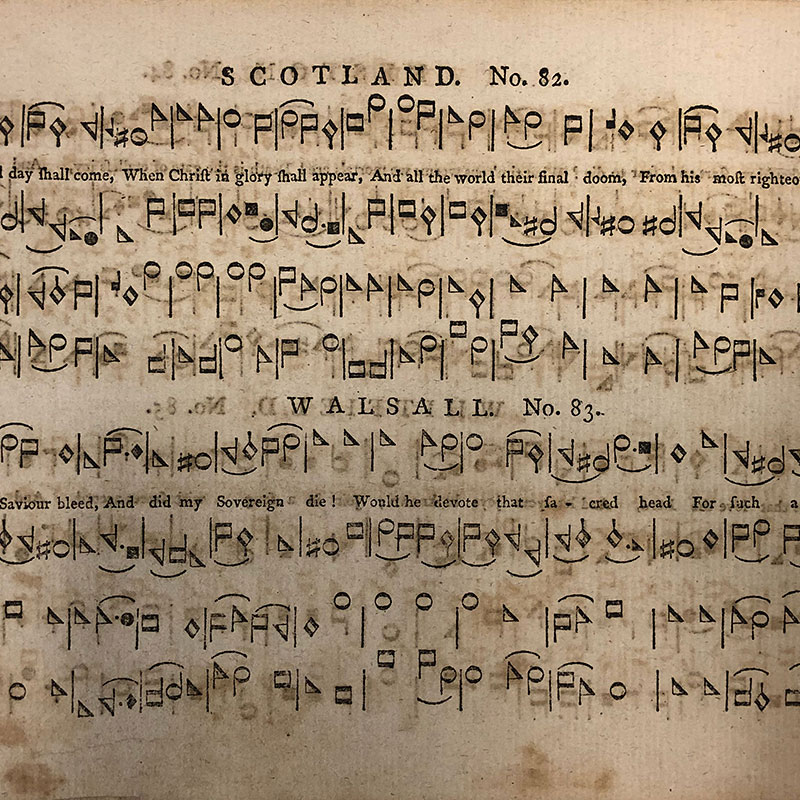 SCOTLAND. No. 82.
day ſhall come, When Chriſt in glory ſhall appear, And all the world their final doom, From his moſt righteo
WALSALL. No. 83.
Saviour bleed, And did my Sovereign die! Would he devote that ſa - cred head For ſuch a